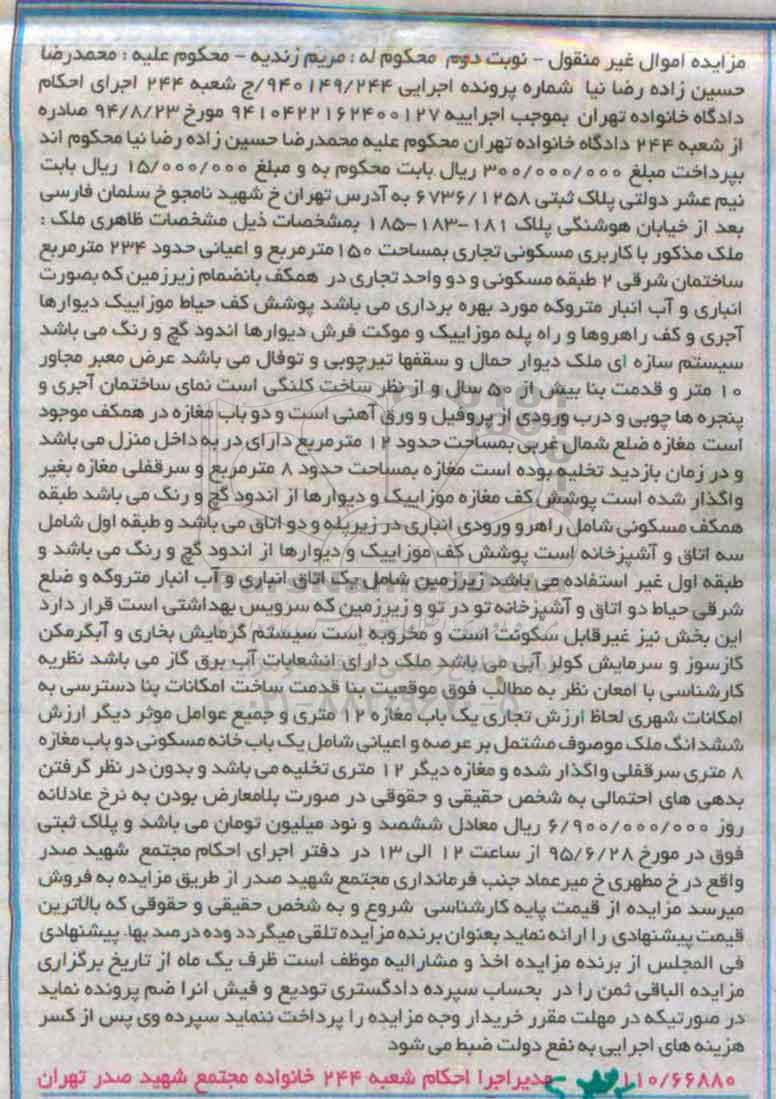 مزایده اموال غیر منقول - نوبت دوم محکوم له : مریم زندیه - محکوم علیه : محمدرضا
حسین زاده رضا نیا شماره پرونده اجرایی ۹۴۰۱۴۹/۲۴۴/ج شعبه ۲۴۴ اجرای احکام
دادگاه خانواده تهران بموجب اجراییه ۹۴۱۰۴۲۲۱۶۲۴۰۰۱۲۷ مورخ ۹۴/۸/۲۳ صادره
از شعبه ۲۴۴ دادگاه خانواده تهران محکوم علیه محمدرضا حسین زاده رضا نیا محکوم اند
بپرداخت مبلغ ۳۰۰/۰۰۰/۰۰۰ ریال بابت محکوم به و مبلغ ۱۵/۰۰۰/۰۰۰ ریال بابت
نیم عشر دولتی پلاک ثبتی ۶۷۳۶/۱۲۵۸ به آدرس تهران خ شهید نامجو خ سلمان فارسی
بعد از خیابان هوشنگی پلاک ۱۸۱-۱۸۳-۱۸۵ بمشخصات ذیل مشخصات ظاهری ملک :
ملک مذکور با کاربری مسکونی تجاری بمساحت ۱۵۰مترمربع و اعیانی حدود ۲۳۴ مترمربع
ساختمان شرقی ۲ طبقه مسکونی و دو واحد تجاری در همکف بانضمام زیرزمین که بصورت
انباری و آب انبار متروکه مورد بهره برداری می باشد پوشش کف حیاط موزاییک دیوارها
آجری و کف راهروها و راه پله موزاییک و موکت فرش دیوارها اندود گچ و رنگ می باشد
سیستم سازه ای ملک دیوار حمال و سقفها تیرچوبی و توفال می باشد عرض معبر مجاور
۱۰ متر و قدمت بنا بیش از ۵۰ سال و از نظر ساخت کلنگی است نمای ساختمان آجری و
پنجره ها چوبی و درب ورودی از پروفیل و ورق آهنی است و دو باب مغازه در همکف موجود
است مغازه ضلع شمال غربی بمساحت حدود ۱۲ مترمربع دارای در به داخل منزل می باشد
و در زمان بازدید تخلیه بوده است مغازه بمساحت حدود ۸ مترمربع و سرقفلی مغازه بغیر
واگذار شده است پوشش کف مغازه موزاییک و دیوارها از اندود گچ و رنگ می باشد طبقه
همکف مسکونی شامل راهرو ورودی انباری در زیرپله و دو اتاق می باشد و طبقه اول شامل
سه اتاق و آشپزخانه است پوشش کف موزاییک و دیوارها از اندود گچ و رنگ می باشد و
طبقه اول غیر استفاده می باشد زیرزمین شامل یک اتاق انباری و آب انبار متروکه و ضلع
شرقی حیاط دو اتاق و آشپزخانه تو در تو و زیرزمین که سرویس بهداشتی است قرار دارد
این بخش نیز غیرقابل سکونت است و مخروبه است سیستم گرمایش بخاری و آبگرمکن
گازسوز و سرمایش کولر آبی می باشد ملک دارای انشعابات آب برق گاز می باشد نظریه
کارشناسی با امعان نظر به مطالب فوق موقعیت بنا قدمت ساخت امکانات بنا دسترسی به
امکانات شهری لحاظ ارزش تجاری یک باب مغازه ۱۲ متری و جمیع عوامل موثر دیگر ارزش
ششدانگ ملک موصوف مشتمل بر عرصه و اعیانی شامل یک باب خانه مسکونی دو باب مغازه
۸ متری سرقفلی واگذار شده و مغازه دیگر ۱۲ متری تخلیه می باشد و بدون در نظر گرفتن
بدهی های احتمالی به شخص حقیقی و حقوقی در صورت بلامعارض بودن به نرخ عادلانه
روز ۶/۹۰۰/۰۰۰/۰۰۰ ریال معادل ششصد و نود میلیون تومان می باشد و پلاک ثبتی
فوق در مورخ ۹۵/۶/۲۸ از ساعت ۱۲ الی ۱۳ در دفتر اجرای احکام مجتمع شهید صدر
واقع در خ مطهری خ میرعماد جنب فرمانداری مجتمع شهید صدر از طریق مزایده به فروش
میرسد مزایده از قیمت پایه کارشناسی شروع و به شخص حقیقی و حقوقی که بالاترین
قیمت پیشنهادی را ارائه نماید بعنوان برنده مزایده تلقی میگردد وده درصد بها، پیشنهادی
فی المجلس از برنده مزایده اخذ و مشارالیه موظف است ظرف یک ماه از تاریخ برگزاری
مزایده الباقی ثمن را در بحساب سپرده دادگستری تودیع و فیش انرا ضم پرونده نماید
در صورتیکه در مهلت مقرر خریدار وجه مزایده را پرداخت ننماید سپرده وی پس از کسر
هزینه های اجرایی به نفع دولت ضبط می شود
۱۱۰/۶۶۸۸۰ مدیراجرا احکام شعبه ۲۴۴ خانواده مجتمع شهید صدر تهران